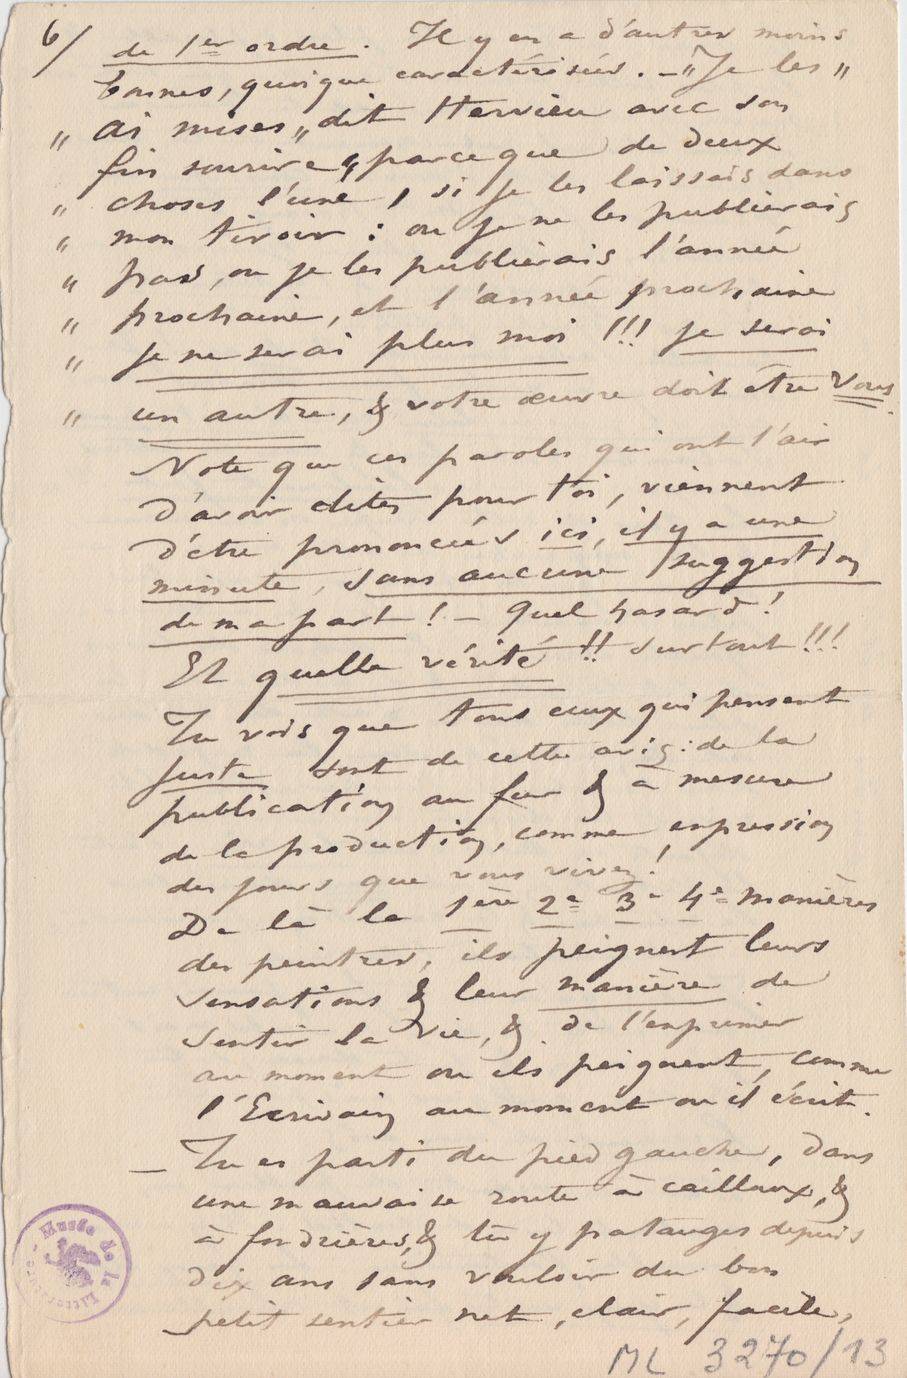 6/
de 1er ordre. Il y en a d'autres moins
bonnes, quoique caractérisées. – "Je les "
" ai mises " dit Hervieu avec son
fin sourire, " parce que de deux
" choses l'une, si je les laissais dans
" mon tiroir : ou je ne les publierais
" pas, ou je les publierais l'année
" prochaine, et l'année prochaine
" je ne serai plus moi !!! je serai
" un autre, & votre œuvre doit être vous.
Note que ces paroles qui ont l'air
d'avoir dites pour toi, viennent
d'être prononcées ici, il y a une
minute, sans aucune suggestion
de ma part ! – Quel hasard !
Et quelle vérité !! surtout !!!
Tu vois que tous ceux qui pensent
juste sont de cette avis : de la
publication au fur & à mesure
de la production, comme expression
des jours que vous vivez !
De là la 1ère 2e 3e 4e manières
des peintres, ils peignent leurs
sensations & leur manière de
sentir la vie, & de l'exprimer
au moment ou ils peignent, comme
l'Ecrivain au moment ou il écrit.
– Tu es parti du pied gauche, dans
une mauvaise route à cailloux, &
à fondrières, & tu y patauges depuis
dix ans sans vouloir du bon
petit sentier net, clair, facile,
Musée de la Littérature
ML 3270/13